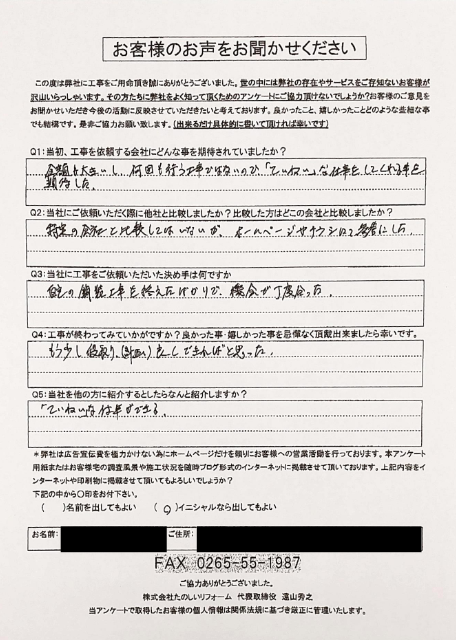 お客様のお声をお聞かせください
この度は弊社に工事をご用命頂き誠にありがとうございました。世の中には弊社の存在やサービスをご存知ないお客様が
沢山いらっしゃいます。その方たちに弊社をよく知って頂くためのアンケートにご協力頂けないでしょうか?お客様のご意見を
お聞かせいただき今後の活動に反映させていただきたいと考えております。良かったこと、嬉しかったことどのような些細な事
でも結構です。是非ご協力お願い致します。(出来るだけ具体的に書いて頂ければ幸いです)
Q1:当初、工事を依頼する会社にどんな事を期待されていましたか?
金額も大きいし、何回も行う工事ではないので、「ていねい」な仕事をしてくれる事を
期待した。
Q2:当社にご依頼いただく際に他社と比較しましたか?比較した方はどこの会社と比較しましたか?
特定の会社と比較してはいないが、ホームページやチラシは参考にした。
Q3:当社に工事をご依頼いただいた決め手は何ですか
工事を終えたばかりで、機会が丁度合った。
Q4:工事が終わってみていかがですか?良かった事・嬉しかった事を忌憚なく頂戴出来ましたら幸いです。
もう少し段取り(計画)よくできればと思った。
Q5:当社を他の方に紹介するとしたらなんと紹介しますか?
「ていねい」な仕事ができる。
*弊社は広告宣伝費を極力かけない為にホームページだけを頼りにお客様への営業活動を行っております。本アンケート
用紙またはお客様宅の調査風景や施工状況を随時ブログ形式のインターネットに掲載させて頂いております。上記内容をイ
ンターネットや印刷物に掲載させて頂いてもよろしいでしょうか?
下記の中から〇印をお付下さい。
( )名前を出してもよい ( ○ )イニシャルなら出してもよい
お名前: ご住所:
FAX 0265-55-1987
ご協力ありがとうございました。
株式会社たのしいリフォーム 代表取締役 遠山秀之
当アンケートで取得したお客様の個人情報は関係法規に基づき厳正に管理いたします。